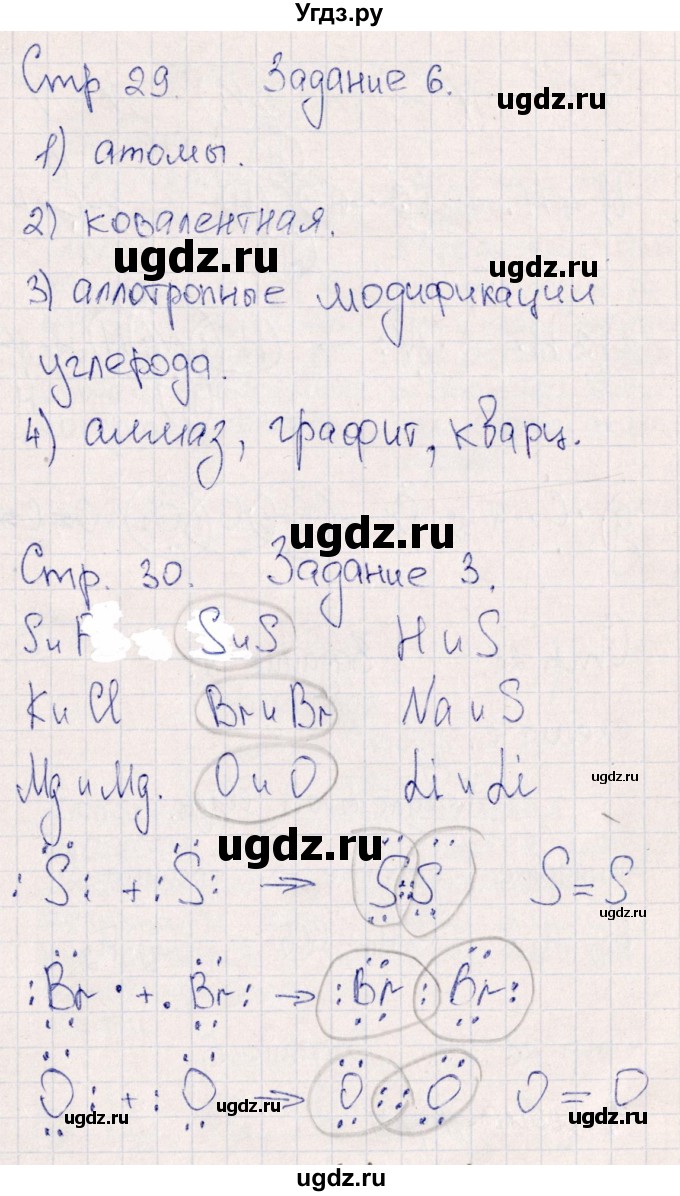 Угдз.ру
Стр 29. Задание 6.
ugdz.ru
1) атомы.
2) ковалентная.
ugdz.ru
ugdz.ru
3) аллотропные модификации
углерода.
4) алмаз, графит, кварц.
ugdz.ru
Стр. 30. Задание 3.
S и F S и S H и S
K и Cl Br и Br Na и S
Mg и Mg. O и O Li и Li
ugdz.ru
ugdz.ru
:S: + :S: → S::S S=S
ugdz.ru
:Br· + ·Br: → :Br:Br:
O: + :O → O::O O=O
ugdz.ru
ugdz.ru
ugdz.ru
ugdz.ru
ugdz.ru